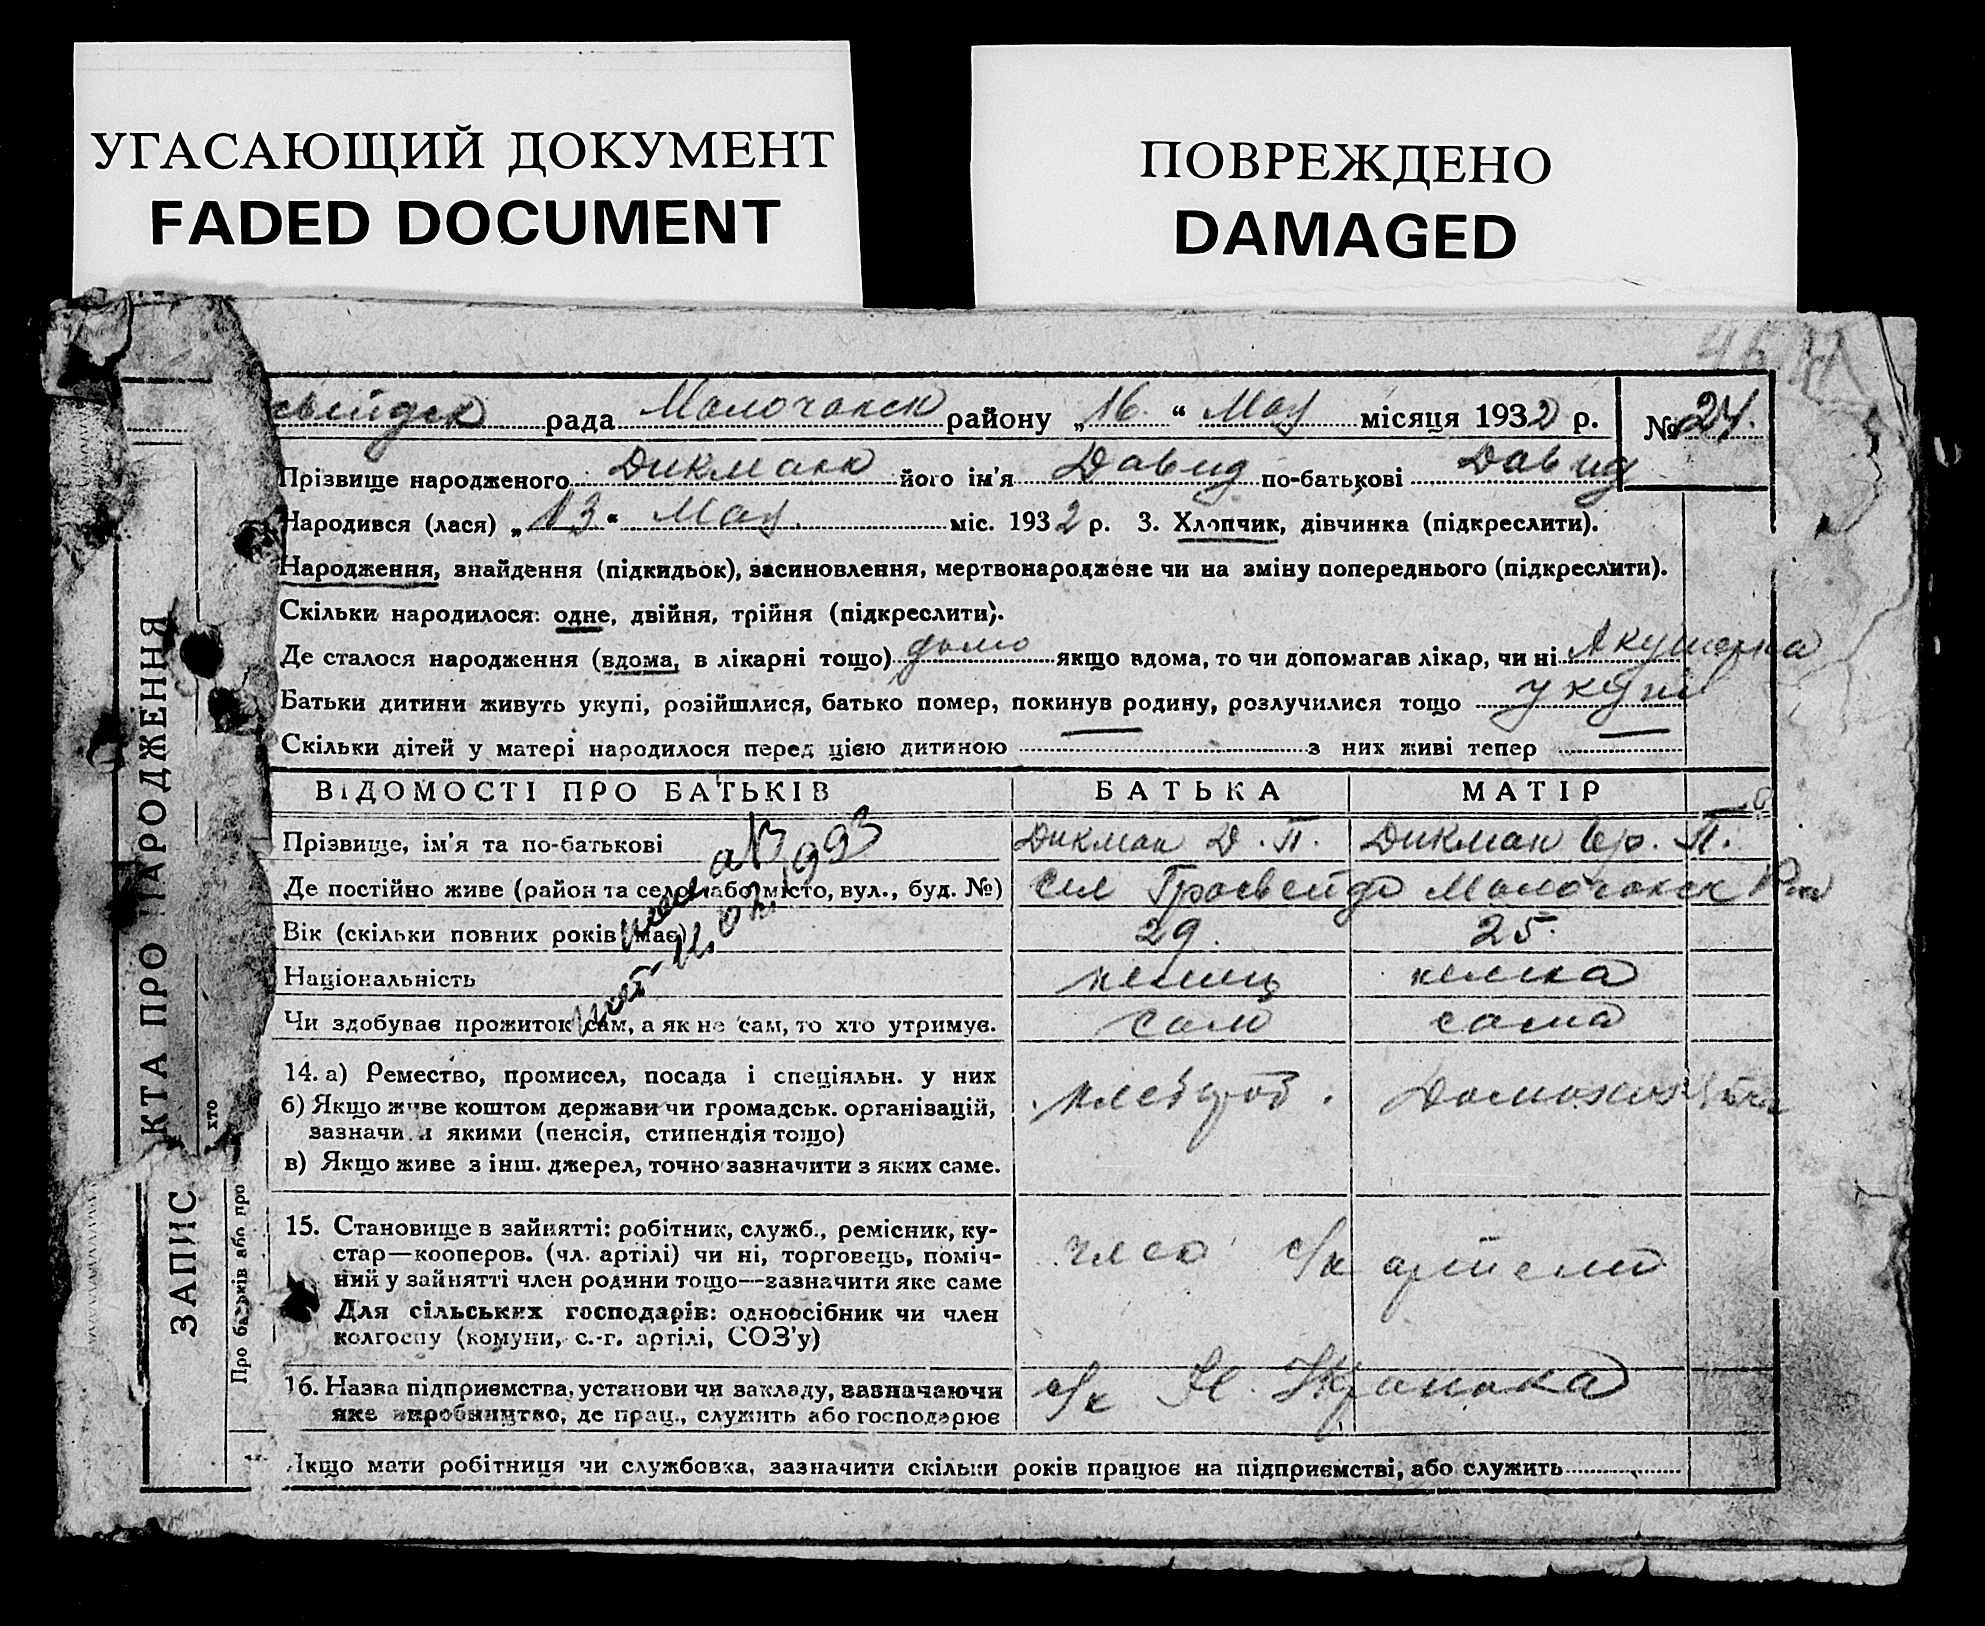 УГАСАЮЩИЙ ДОКУМЕНТ
FADED DOCUMENT
ПОВРЕЖДЕНО
DAMAGED
свейдск рада Молочанск району „16“ Мая місяця 1932 р. № 24.
Прізвище народженого Дикман його ім'я Давид по-батькові Давид
Народився (лася) „13“ Мая міс. 1932 р. 3. Хлопчик, дівчинка (підкреслити).
Народження, знайдення (підкидьок), засиновлення, мертвонароджене чи на зміну попереднього (підкреслити).
Скільки народилося: одне, двійня, трійня (підкреслити).
Де сталося народження (вдома, в лікарні тощо) дома якщо вдома, то чи допомагав лікар, чи ні Акушерка
Батьки дитини живуть укупі, розійшлися, батько помер, покинув родину, розлучилися тощо укупі
Скільки дітей у матері народилося перед цією дитиною — з них живі тепер —
ВІДОМОСТІ ПРО БАТЬКІВ БАТЬКА МАТІР
Прізвище, ім'я та по-батькові Дикман Д. П. Дикман П.
Де постійно живе (район та село або місто, вул., буд. №) Сел Гросвейде Молочанск
Вік (скільки повних років має) 29. 25.
Національність немец немка
Чи здобував прожиток сам, а як не сам, то хто утримує. сам сама
14. а) Ремество, промисел, посада і спеціяльн. у них
б) Якщо живе коштом держави чи громадськ. організацій,
зазначи и якими (пенсія, стипендія тощо)
в) Якщо живе з інш. джерел, точно зазначити з яких саме.
15. Становище в зайнятті: робітник, служб., ремісник, ку-
стар—кооперов. (чл. артілі) чи ні, торговець, поміч-
ний у зайнятті член родини тощо—зазначити яке саме
Для сільських господарів: одноосібник чи член
колгоспу (комуни, с.-г. артілі, СОЗ'у)
член с/х артели
16. Назва підприємства, установи чи закладу, зазначаючи
яке виробництво, де прац., служить або господарює
с/х
Якщо мати робітниця чи службовка, зазначити скільки років працює на підприємстві, або служить
1993
ЗАПИС
КТА ПРО НАРОДЖЕННЯ
хто
Про батьків або про